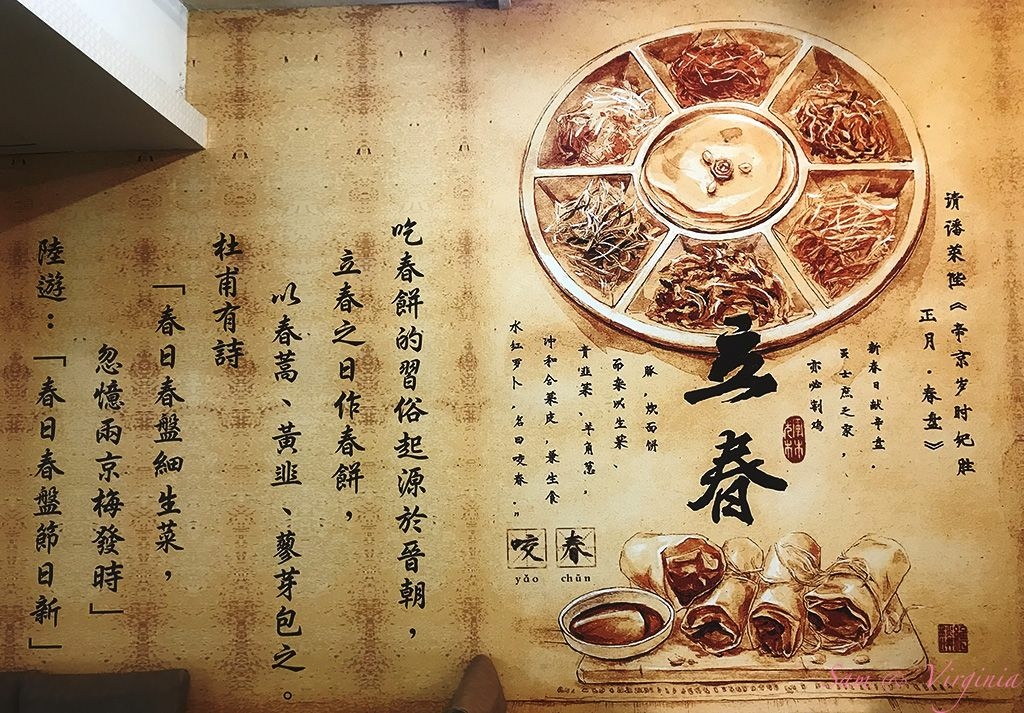 清潘荣陛《帝京岁时纪胜
正月·春盘》
新春日献辛盘。
虽士庶之家，
亦必割鸡
豚，炊面饼
而杂以生菜、
青韭菜、羊角葱，
冲和合菜皮，兼生食
水红罗卜，名曰咬春。”
立春
咬春
yǎo chūn
吃春餅的習俗起源於晉朝，
立春之日作春餅，
以春蒿、黃韭、蓼芽包之。
杜甫有詩
「春日春盤細生菜，
忽憶兩京梅發時」
陸遊：「春日春盤節日新」
Sam & Virginia